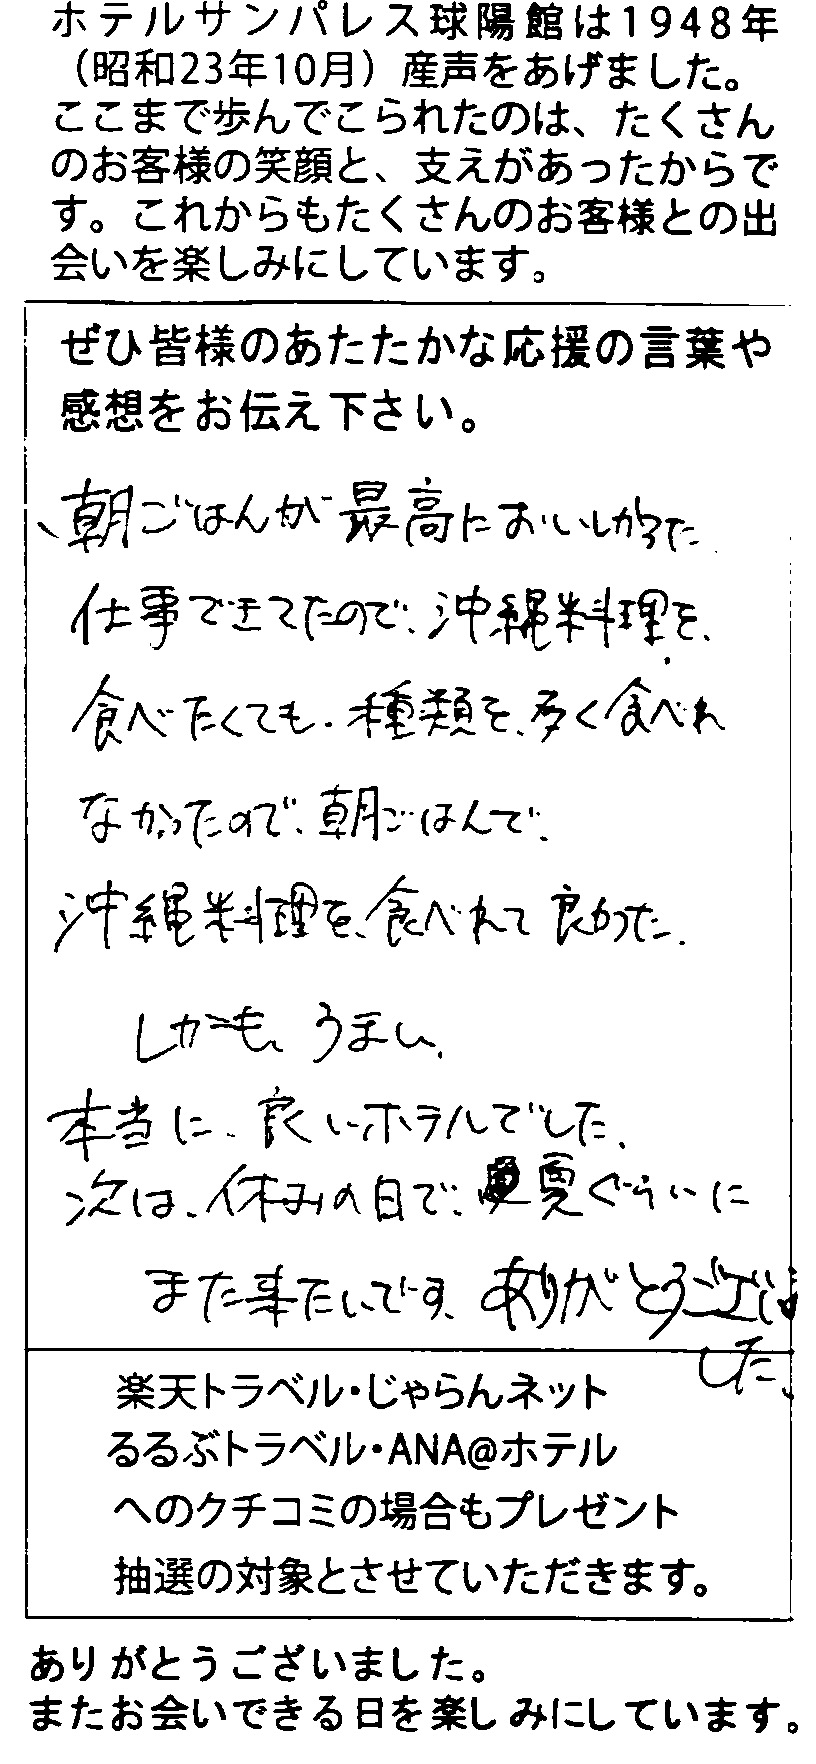 ホテルサンパレス球陽館は1948年
（昭和23年10月）産声をあげました。
ここまで歩んでこられたのは、たくさん
のお客様の笑顔と、支えがあったからで
す。これからもたくさんのお客様との出
会いを楽しみにしています。
ぜひ皆様のあたたかな応援の言葉や
感想をお伝え下さい。
、朝ごはんが最高においしかった
仕事できてたので、沖縄料理を、
食べたくても、種類を、多く食べれ
なかったので、朝ごはんで、
沖縄料理を、食べれて良かった。
しかも、うまい。
本当に、良いホテルでした。
次は、休みの日で、夏ぐらいに
また来たいです。ありがとうございま
した。
楽天トラベル・じゃらんネット
るるぶトラベル・ANA@ホテル
へのクチコミの場合もプレゼント
抽選の対象とさせていただきます。
ありがとうございました。
またお会いできる日を楽しみにしています。